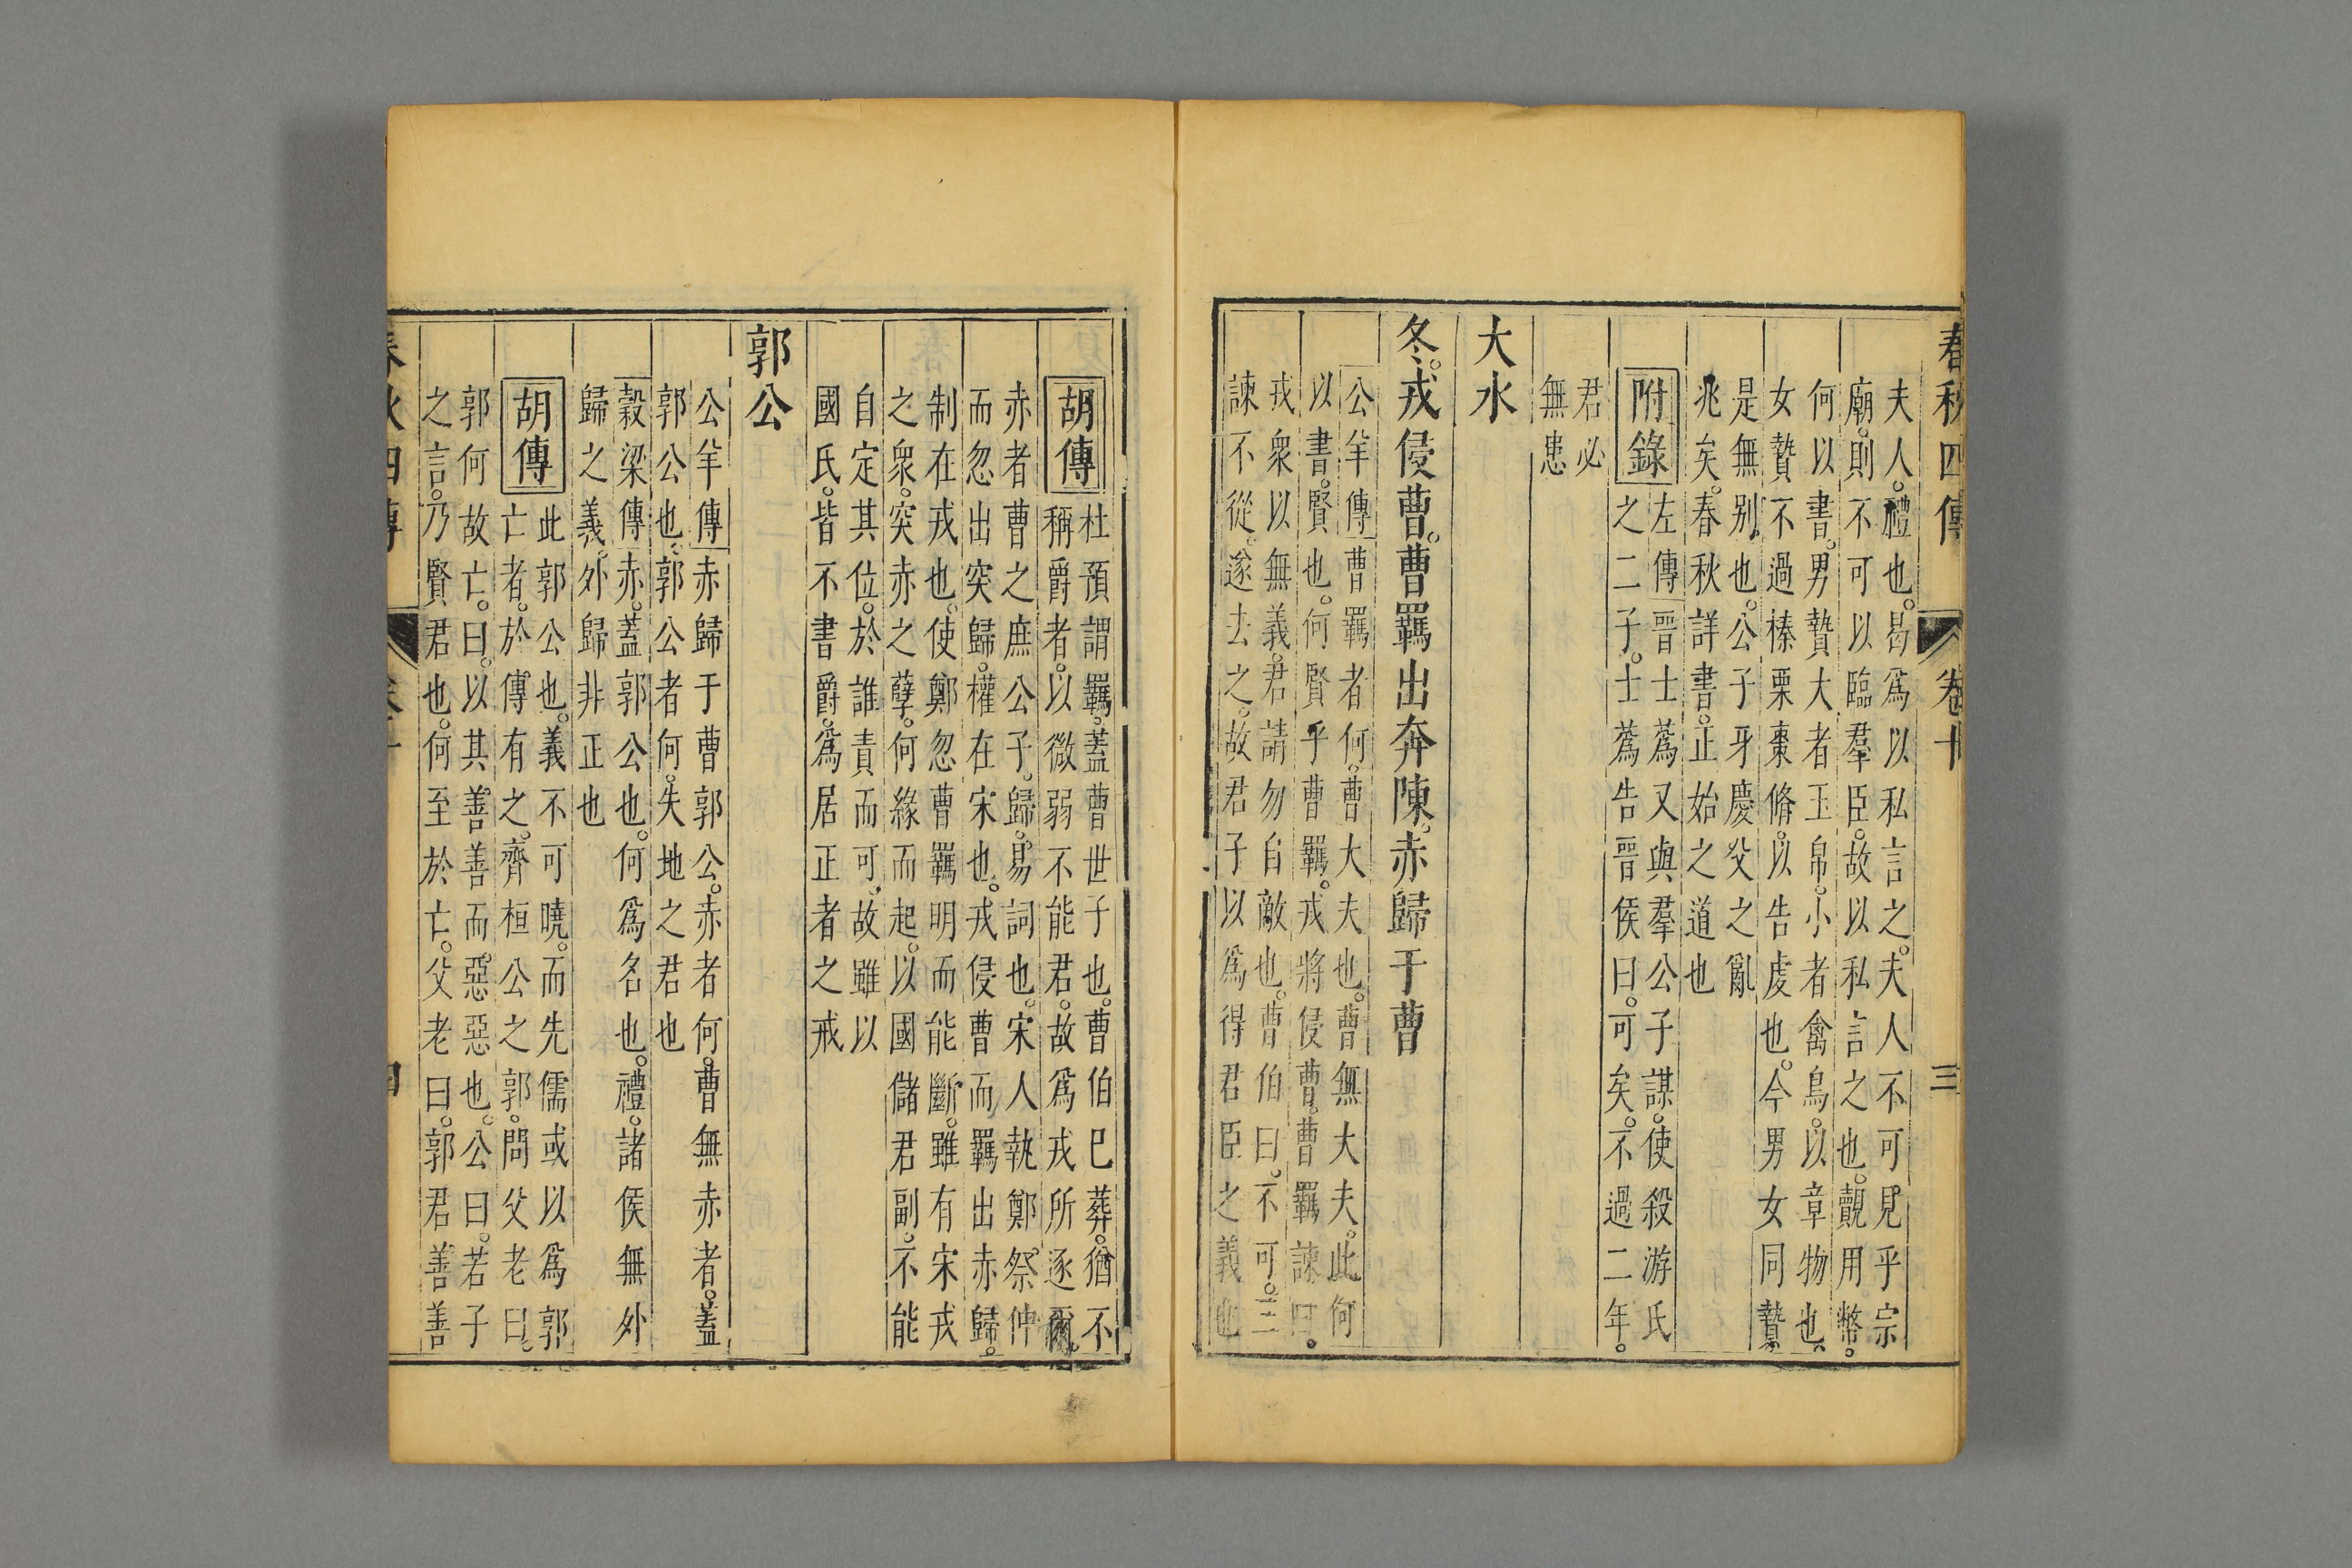 春秋四傳 卷十 三
夫人。禮也。曷爲以私言之。夫人不可見乎宗
廟。則不可以臨羣臣。故以私言之也。覿用幣。
何以書。男贄大者玉帛。小者禽鳥。以章物也。
女贄不過榛栗棗脩。以告虔也。今男女同贄。
是無别也。公子牙慶父之亂
兆矣。春秋詳書。正始之道也
附錄
左傳晉士蔿又與羣公子謀。使殺游氏
之二子。士蔿告晉侯曰。可矣。不過二年。
君必
無患
大水
冬。戎侵曹。曹羈出奔陳。赤歸于曹
公羊傳曹羈者何。曹大夫也。曹無大夫。此何
以書。賢也。何賢乎曹羈。戎將侵曹。曹羈諫曰。
戎衆以無義。君請勿自敵也。曹伯曰。不可。三
諫不從。遂去之。故君子以爲得君臣之義也
胡傳
杜預謂羈。蓋曹世子也。曹伯已葬。猶不
稱爵者。以微弱不能君。故爲戎所逐爾。
赤者曹之庶公子。歸。易詞也。宋人執鄭祭仲
而忽出突歸。權在宋也。戎侵曹而羈出赤歸。
制在戎也。使鄭忽曹羈明而能斷。雖有宋戎
之衆。突赤之孽。何緣而起。以國儲君副。不能
自定其位。於誰責而可。故雖以
國氏。皆不書爵。爲居正者之戒
郭公
公羊傳赤歸于曹郭公。赤者何。曹無赤者。蓋
郭公也。郭公者何。失地之君也
穀梁傳赤。蓋郭公也。何爲名也。禮。諸侯無外
歸之義。外歸非正也
胡傳
此郭公也。義不可曉。而先儒或以爲郭
亡者。於傳有之。齊桓公之郭。問父老曰。
郭何故亡。曰。以其善善而惡惡也。公曰。若子
之言。乃賢君也。何至於亡。父老曰。郭君善善
春秋四傳